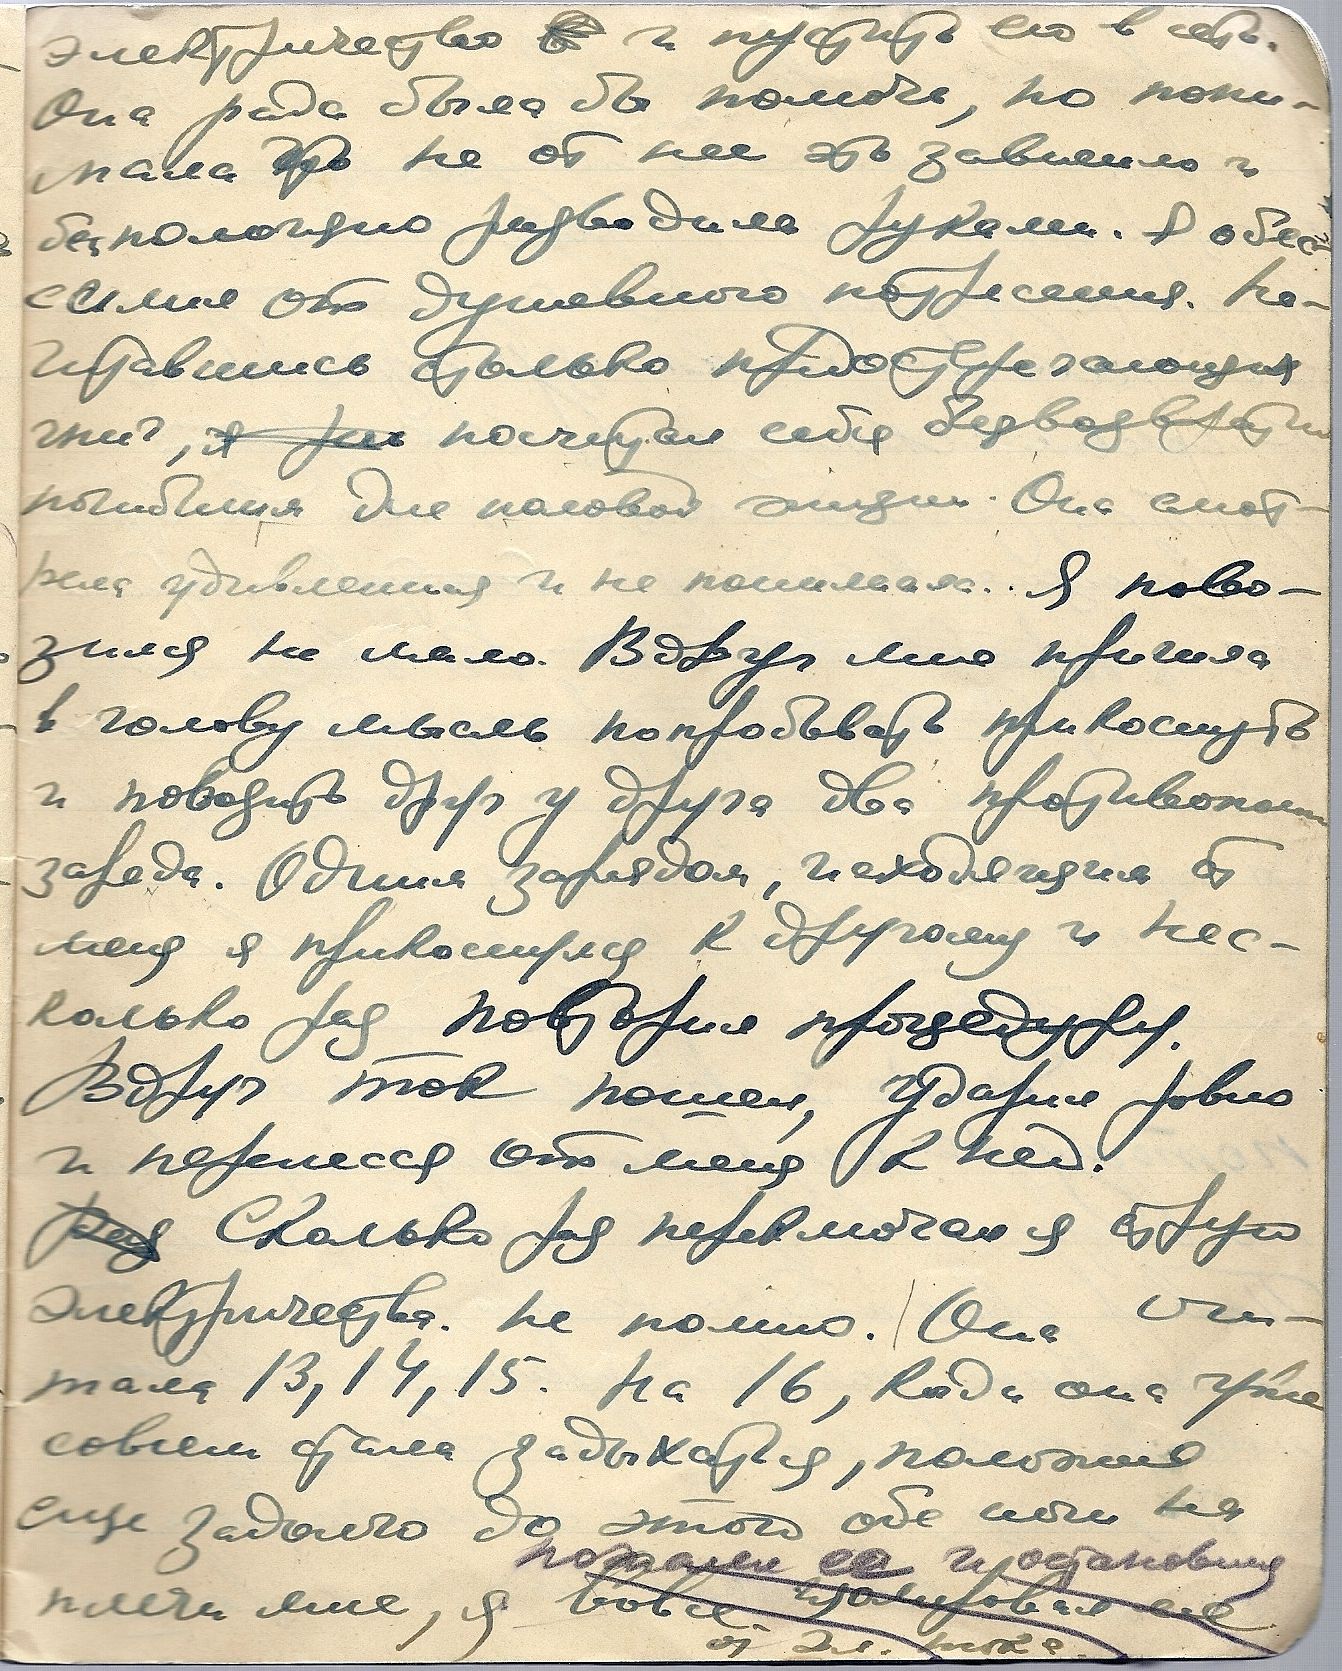 электричество и пустить его в сеть.
Она рада была бы помочь, но пони-
мала что не от нее это зависело и
беспомощно разводила руками. Я обес-
силил от душевного потрясения. На-
читавшись столько предостерегающих
книг, я почитал себя безвозвратно
погибшим для половой жизни. Она смот-
рела удивленная и не понимала.. Я пово-
зился не мало. Вдруг мне пришла
в голову мысль попробывать прикоснуть
и поводить друг у друга два противопол
заряда. Одним зарядом, находящимся от
меня я прикоснулся к другому и нес-
колько раз повторил процедуру.
Вдруг ток пошел, ударил ровно
и перенесся от меня к ней.
Сколько раз переключал я струю
электричества не помню. Она счи-
тала 13, 14, 15. На 16, когда она уже
совсем стала задыхатся, положив
еще задолго до этого обе ноги на
пожалел ее и остановил
плечи мне, я вовсе изолировал ее
от эл. тока.